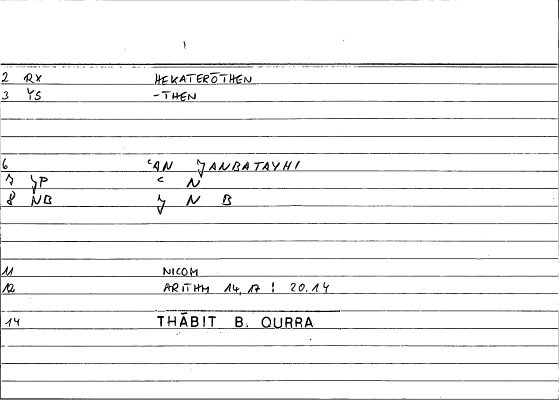 2 RX HEKATERŌTHEN
3 YS -THEN
6 ʿAN ǮANBATAYHI
7 ȷP ʿ N
8 NB ȷ N B
11 NICOM
12 ARITHM 14,17 ; 20,14
14 THĀBIT B. QURRA